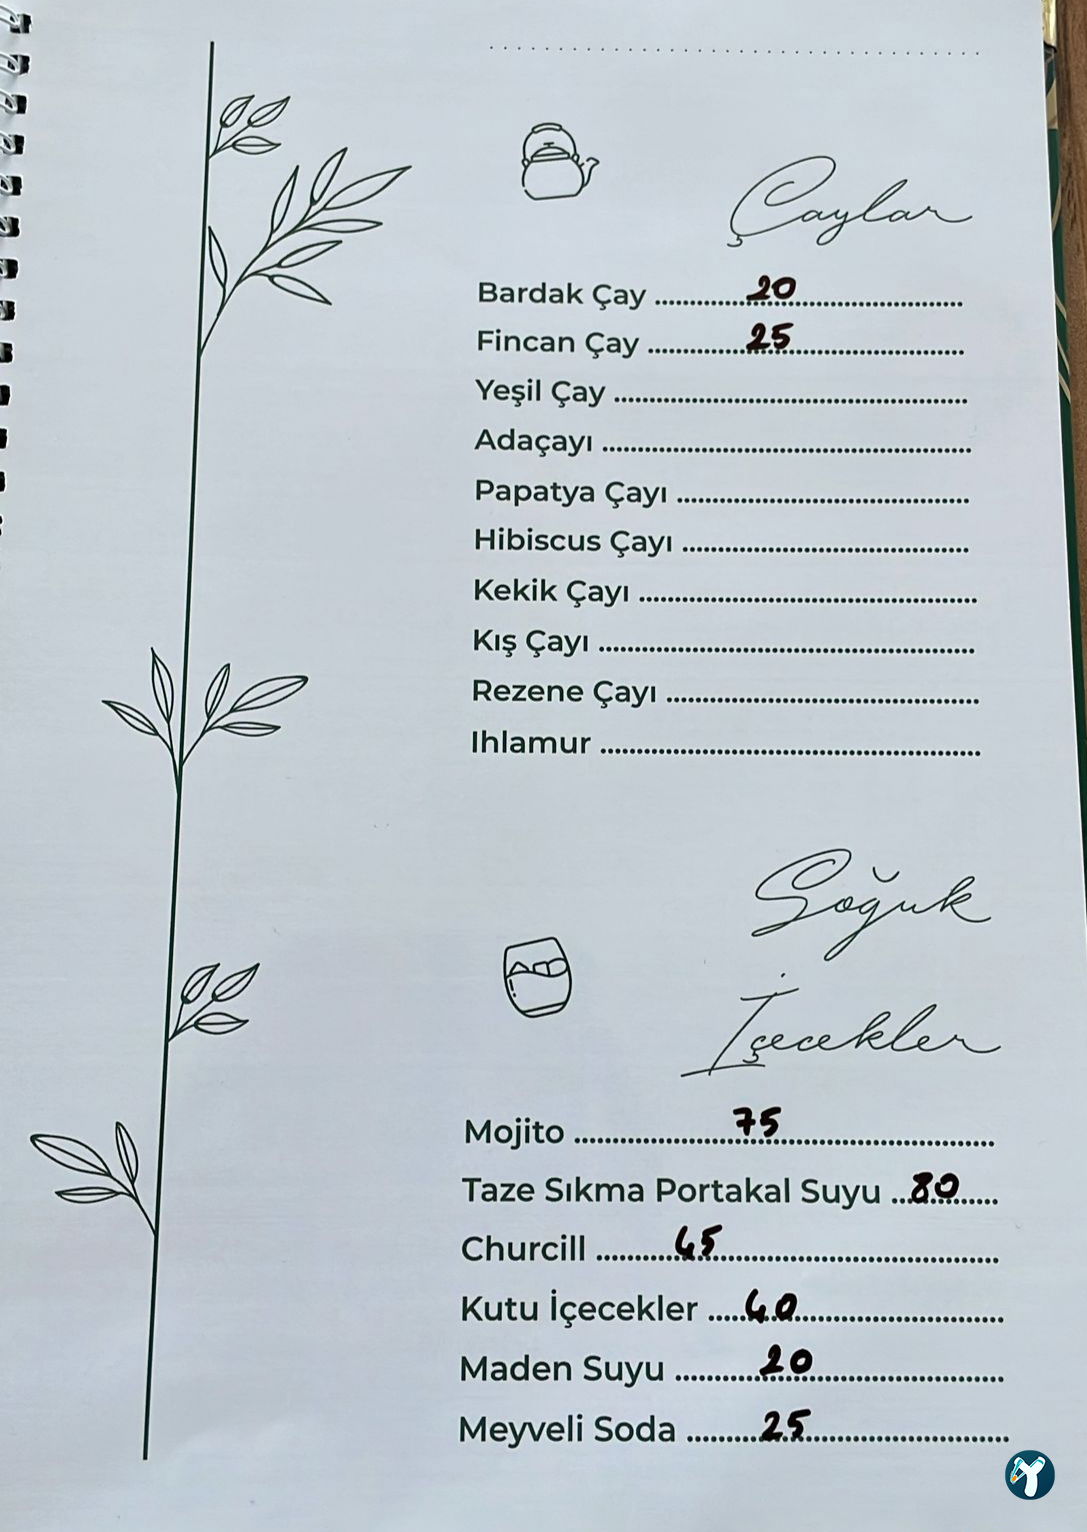 Çaylar
Bardak Çay ........ 20 ........
Fincan Çay ........ 25 ........
Yeşil Çay ........
Adaçayı ........
Papatya Çayı ........
Hibiscus Çayı ........
Kekik Çayı ........
Kış Çayı ........
Rezene Çayı ........
Ihlamur ........
Soğuk
İçecekler
Mojito ........ 75 ........
Taze Sıkma Portakal Suyu ... 80 ...
Churcill ........ 45 ........
Kutu İçecekler ..... 40 ........
Maden Suyu ........ 20 ........
Meyveli Soda ........ 25 ........